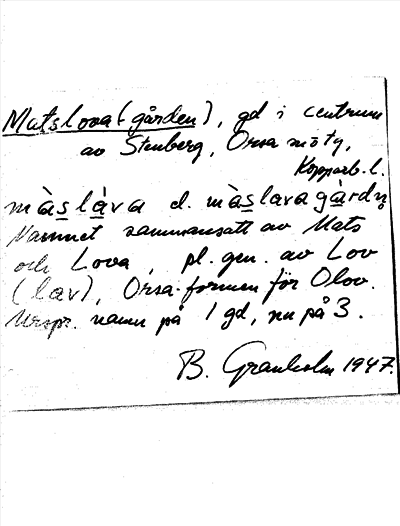 Matslova(-gården), gd i centrum
av Stenberg, Orsa mo tg,
Kopparb. l.
màs̲là̲va el. màs̲lavagàrdn̥
Namnet sammansatt av Mats
och Lova, pl. gen. av Lov
(lav), Orsa-formen för Olov.
Urspr. namn på 1 gd, nu på 3.
B. Granholm 1947.